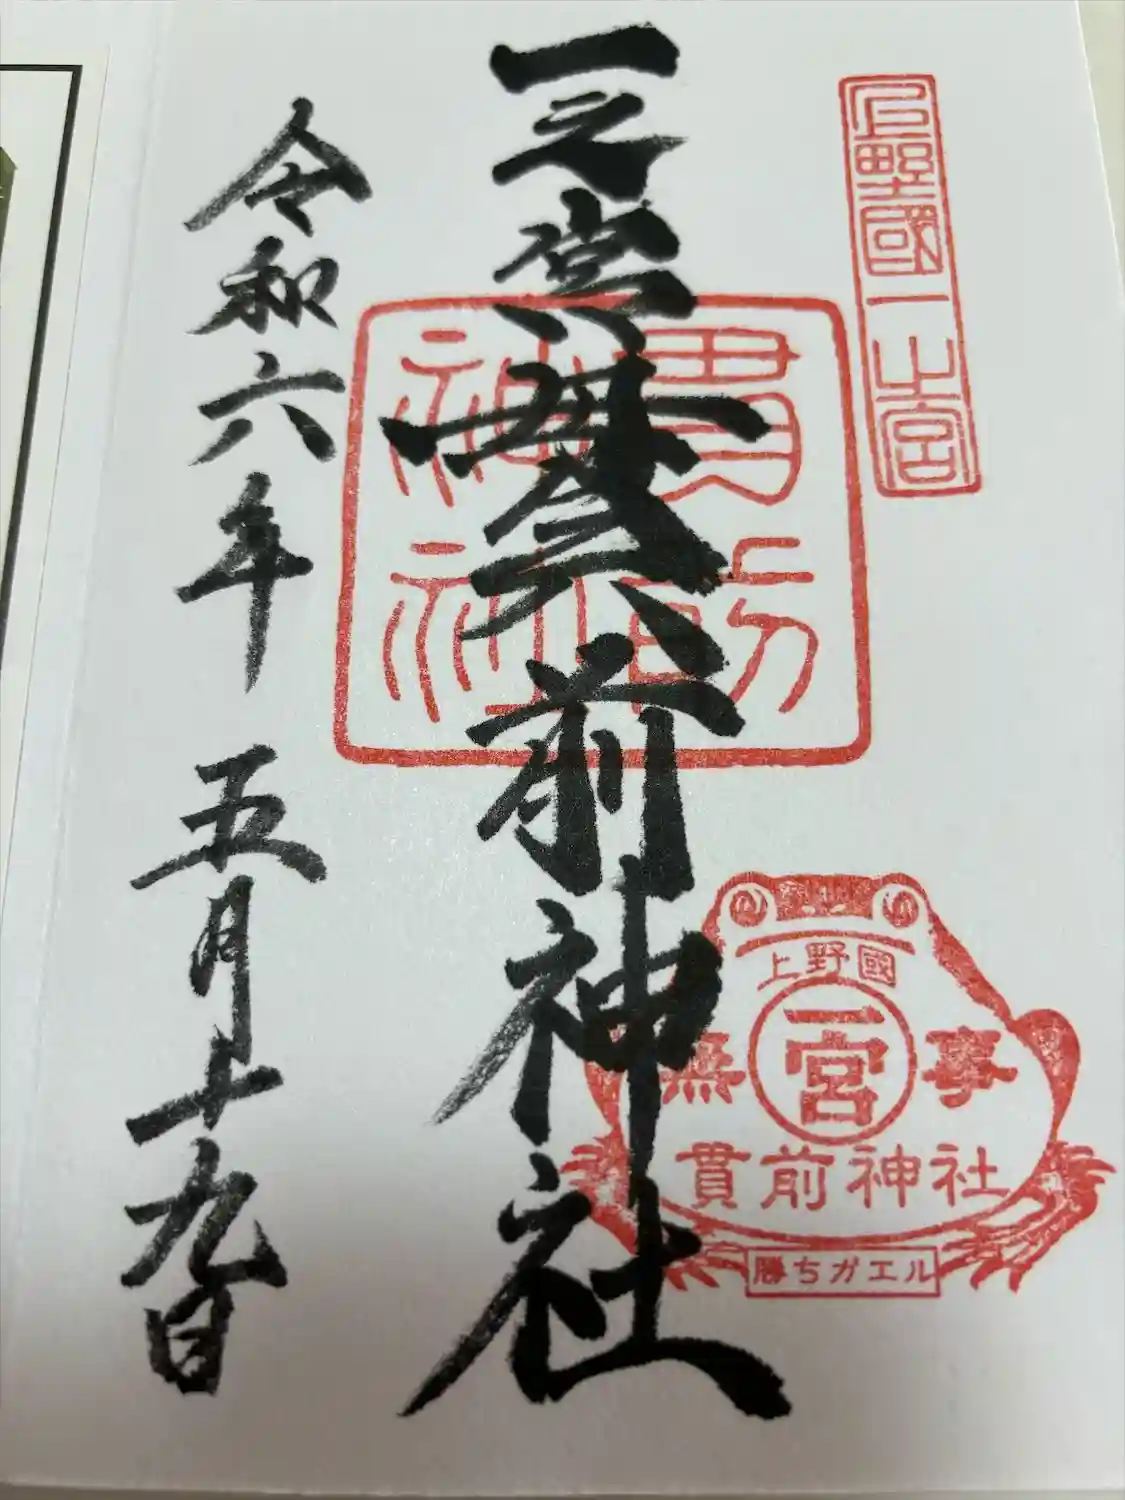 上野國一之宮
一之宮貫前神社
貫前
神社
令和六年 五月十九日
上野國
一宮
無事
貫前神社
勝ちガエル